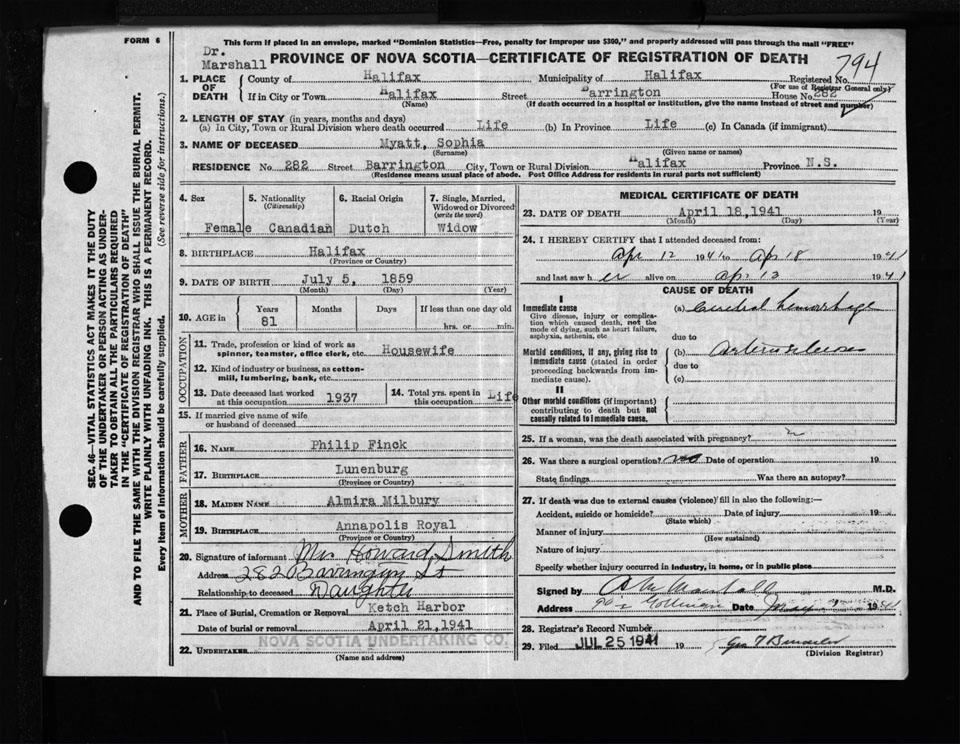 FORM 6
This form if placed in an envelope, marked "Dominion Statistics—Free, penalty for improper use $300," and properly addressed will pass through the mail "FREE"
Dr. Marshall
PROVINCE OF NOVA SCOTIA—CERTIFICATE OF REGISTRATION OF DEATH
794
1. PLACE OF DEATH
County of Halifax Municipality of Halifax Registered No.
(For use of Registrar General only)
If in City or Town Halifax Street Barrington House No. 282
(Name) (If death occurred in a hospital or institution, give the name instead of street and number)
2. LENGTH OF STAY (in years, months and days)
(a) In City, Town or Rural Division where death occurred Life (b) In Province Life (c) In Canada (if immigrant)
3. NAME OF DECEASED Myatt, Sophia
(Surname) (Given name or names)
RESIDENCE No 282 Street Barrington City, Town or Rural Division Halifax Province N.S.
(Residence means usual place of abode. Post Office Address for residents in rural parts not sufficient)
4. Sex Female
5. Nationality (Citizenship) Canadian
6. Racial Origin Dutch
7. Single, Married, Widowed or Divorced (write the word) Widow
8. BIRTHPLACE Halifax
(Province or Country)
9. DATE OF BIRTH July 5, 1859
(Month) (Day) (Year)
10. AGE in Years 81 Months Days If less than one day old
hrs. or min.
OCCUPATION
11. Trade, profession or kind of work as spinner, teamster, office clerk, etc. Housewife
12. Kind of industry or business, as cotton-mill, lumbering, bank, etc.
13. Date deceased last worked at this occupation 1937
14. Total yrs. spent in this occupation Life
15. If married give name of wife or husband of deceased
FATHER
16. NAME Philip Finck
17. BIRTHPLACE Lunenburg
(Province or Country)
MOTHER
18. MAIDEN NAME Almira Milbury
19. BIRTHPLACE Annapolis Royal
(Province or Country)
20. Signature of informant Mrs Howard Smith
Address 282 Barrington St
Relationship to deceased Daughter
21. Place of Burial, Cremation or Removal Ketch Harbor
Date of burial or removal April 21, 1941
22. UNDERTAKER NOVA SCOTIA UNDERTAKING CO.
(Name and address)
MEDICAL CERTIFICATE OF DEATH
23. DATE OF DEATH April 18, 1941 19
(Month) (Day) (Year)
24. I HEREBY CERTIFY that I attended deceased from:
Apr 12 1941 to Apr 18 1941
and last saw her alive on Apr 13 1941
CAUSE OF DEATH
I
Immediate cause
Give disease, injury or complication which caused death, not the mode of dying, such as heart failure, asphyxia, asthenia, etc
(a) Cerebral hemorrhage
due to
Morbid conditions, if any, giving rise to immediate cause (stated in order proceeding backwards from immediate cause).
(b)
due to
(c)
II
Other morbid conditions (if important) contributing to death but not causally related to immediate cause.
25. If a woman, was the death associated with pregnancy?
26. Was there a surgical operation? no Date of operation 19
State findings Was there an autopsy?
27. If death was due to external causes (violence) fill in also the following:—
Accident, suicide or homicide? Date of injury 19
(State which)
Manner of injury
(How sustained)
Nature of injury
Specify whether injury occurred in industry, in home, or in public place
Signed by Marshall M.D.
Address Date 1941
28. Registrar's Record Number
29. Filed JUL 25 1941 19
(Division Registrar)
SEC. 46—VITAL STATISTICS ACT MAKES IT THE DUTY
OF THE UNDERTAKER OR PERSON ACTING AS UNDER-
TAKER TO OBTAIN ALL THE PARTICULARS REQUIRED
IN THE "CERTIFICATE OF REGISTRATION OF DEATH"
AND TO FILE THE SAME WITH THE DIVISION REGISTRAR WHO SHALL ISSUE THE BURIAL PERMIT.
WRITE PLAINLY WITH UNFADING INK. THIS IS A PERMANENT RECORD.
Every item of information should be carefully supplied. (See reverse side for instructions.)